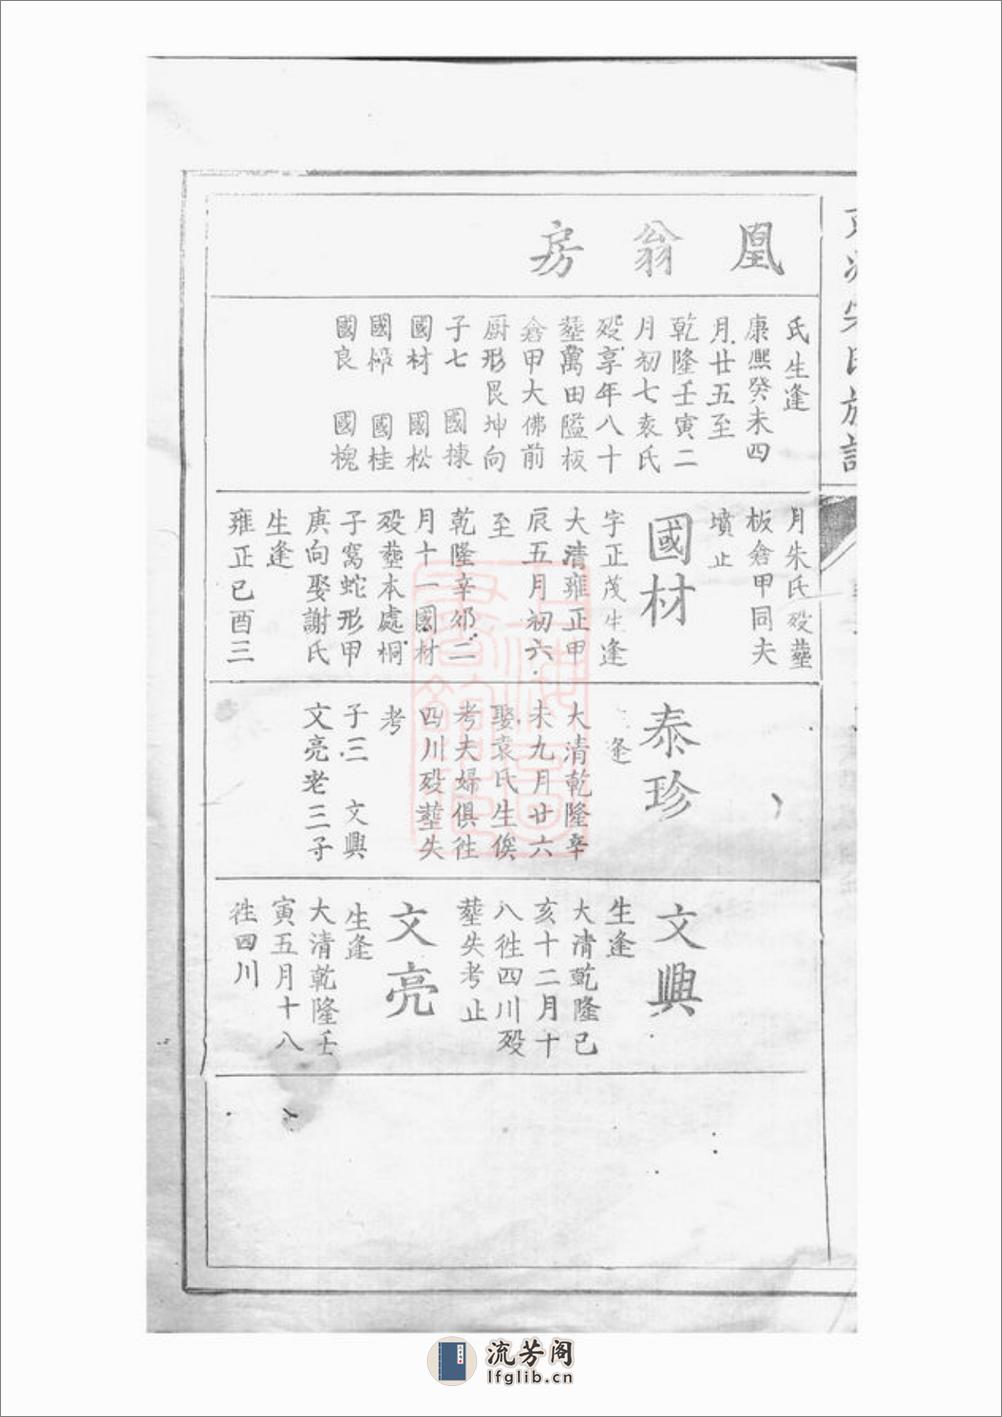 凰翁房
氏生逢
康熙癸未四
月廿五至
乾隆壬寅二
月初七袁氏
殁享年八十
塟萬田隘板
倉甲大佛前
厨形艮坤向
子七 國棟
國材 國松
國樑 國桂
國良 國槐
月朱氏殁塟
板倉甲同夫
墳止
國材
字正茂生逢
大清雍正甲
辰五月初六
至
乾隆辛卯二
月十一國材
殁塟本處桐
子窩蛇形甲
庚向娶謝氏
生逢
雍正己酉三
泰珍
逢
大清乾隆辛
未九月廿六
娶袁氏生俟
考夫婦俱徃
四川殁塟失
考
子三 文興
文亮老三子
文興
生逢
大清乾隆己
亥十二月十
八徃四川殁
塟失考止
文亮
生逢
大清乾隆壬
寅五月十八
徃四川
流芳阁
lfglib.cn